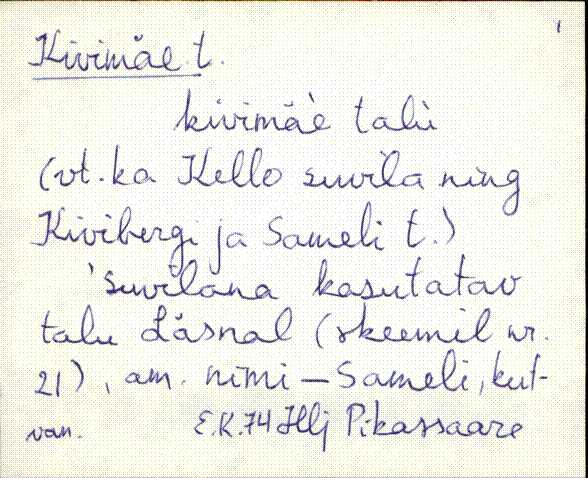 Kivimäe t.
kivimäè talù
(vt. ka Kello suvila ning
Kivibergi ja Sameli t.)
`suvilana kasutatav
talu Läsnal (skeemil nr.
21), am. nimi – Sameli, kut-
van. E.K.74 Hlj Pikassaare